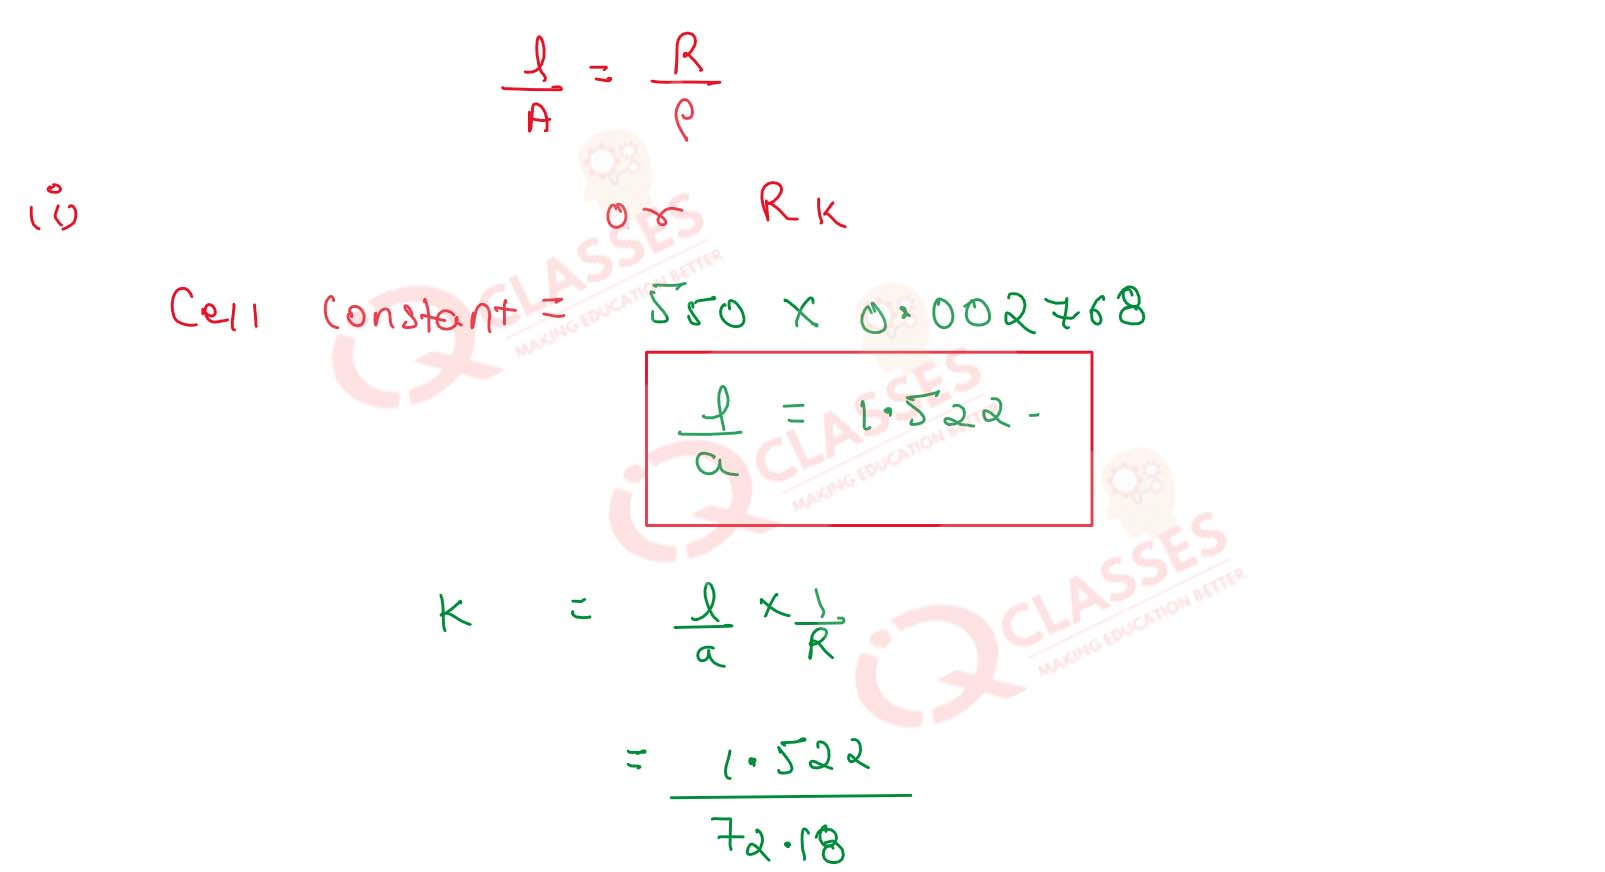 l/A = R/ρ
ii) or RK
Cell Constant = 550 × 0.002768
l/a = 1.522 -
K = l/a × 1/R
= 1.522/72.18
iQ CLASSES
MAKING EDUCATION BETTER
iQ CLASSES
MAKING EDUCATION BETTER
iQ CLASSES
MAKING EDUCATION BETTER